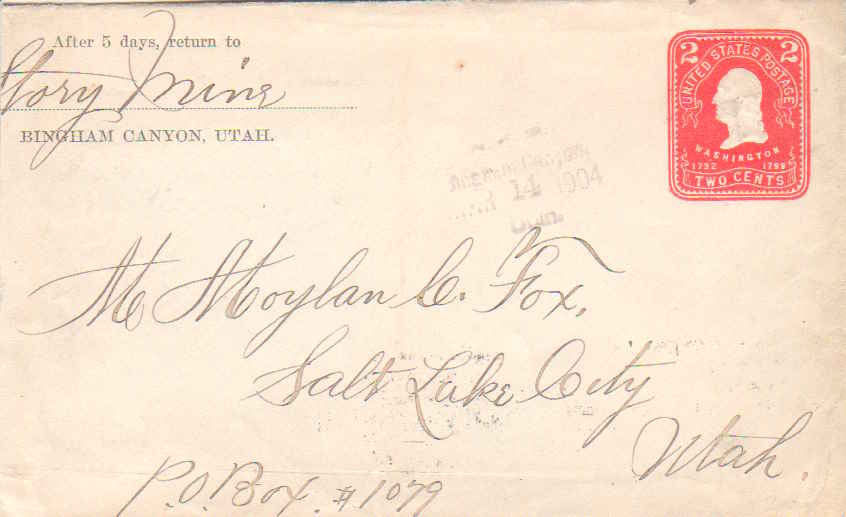 After 5 days, return to
Story Mine
BINGHAM CANYON, UTAH.
2 UNITED STATES POSTAGE 2
WASHINGTON
1732 1799
TWO CENTS
14 1904
M Moylan C. Fox,
Salt Lake City
Utah.
P.O. Box. #1079